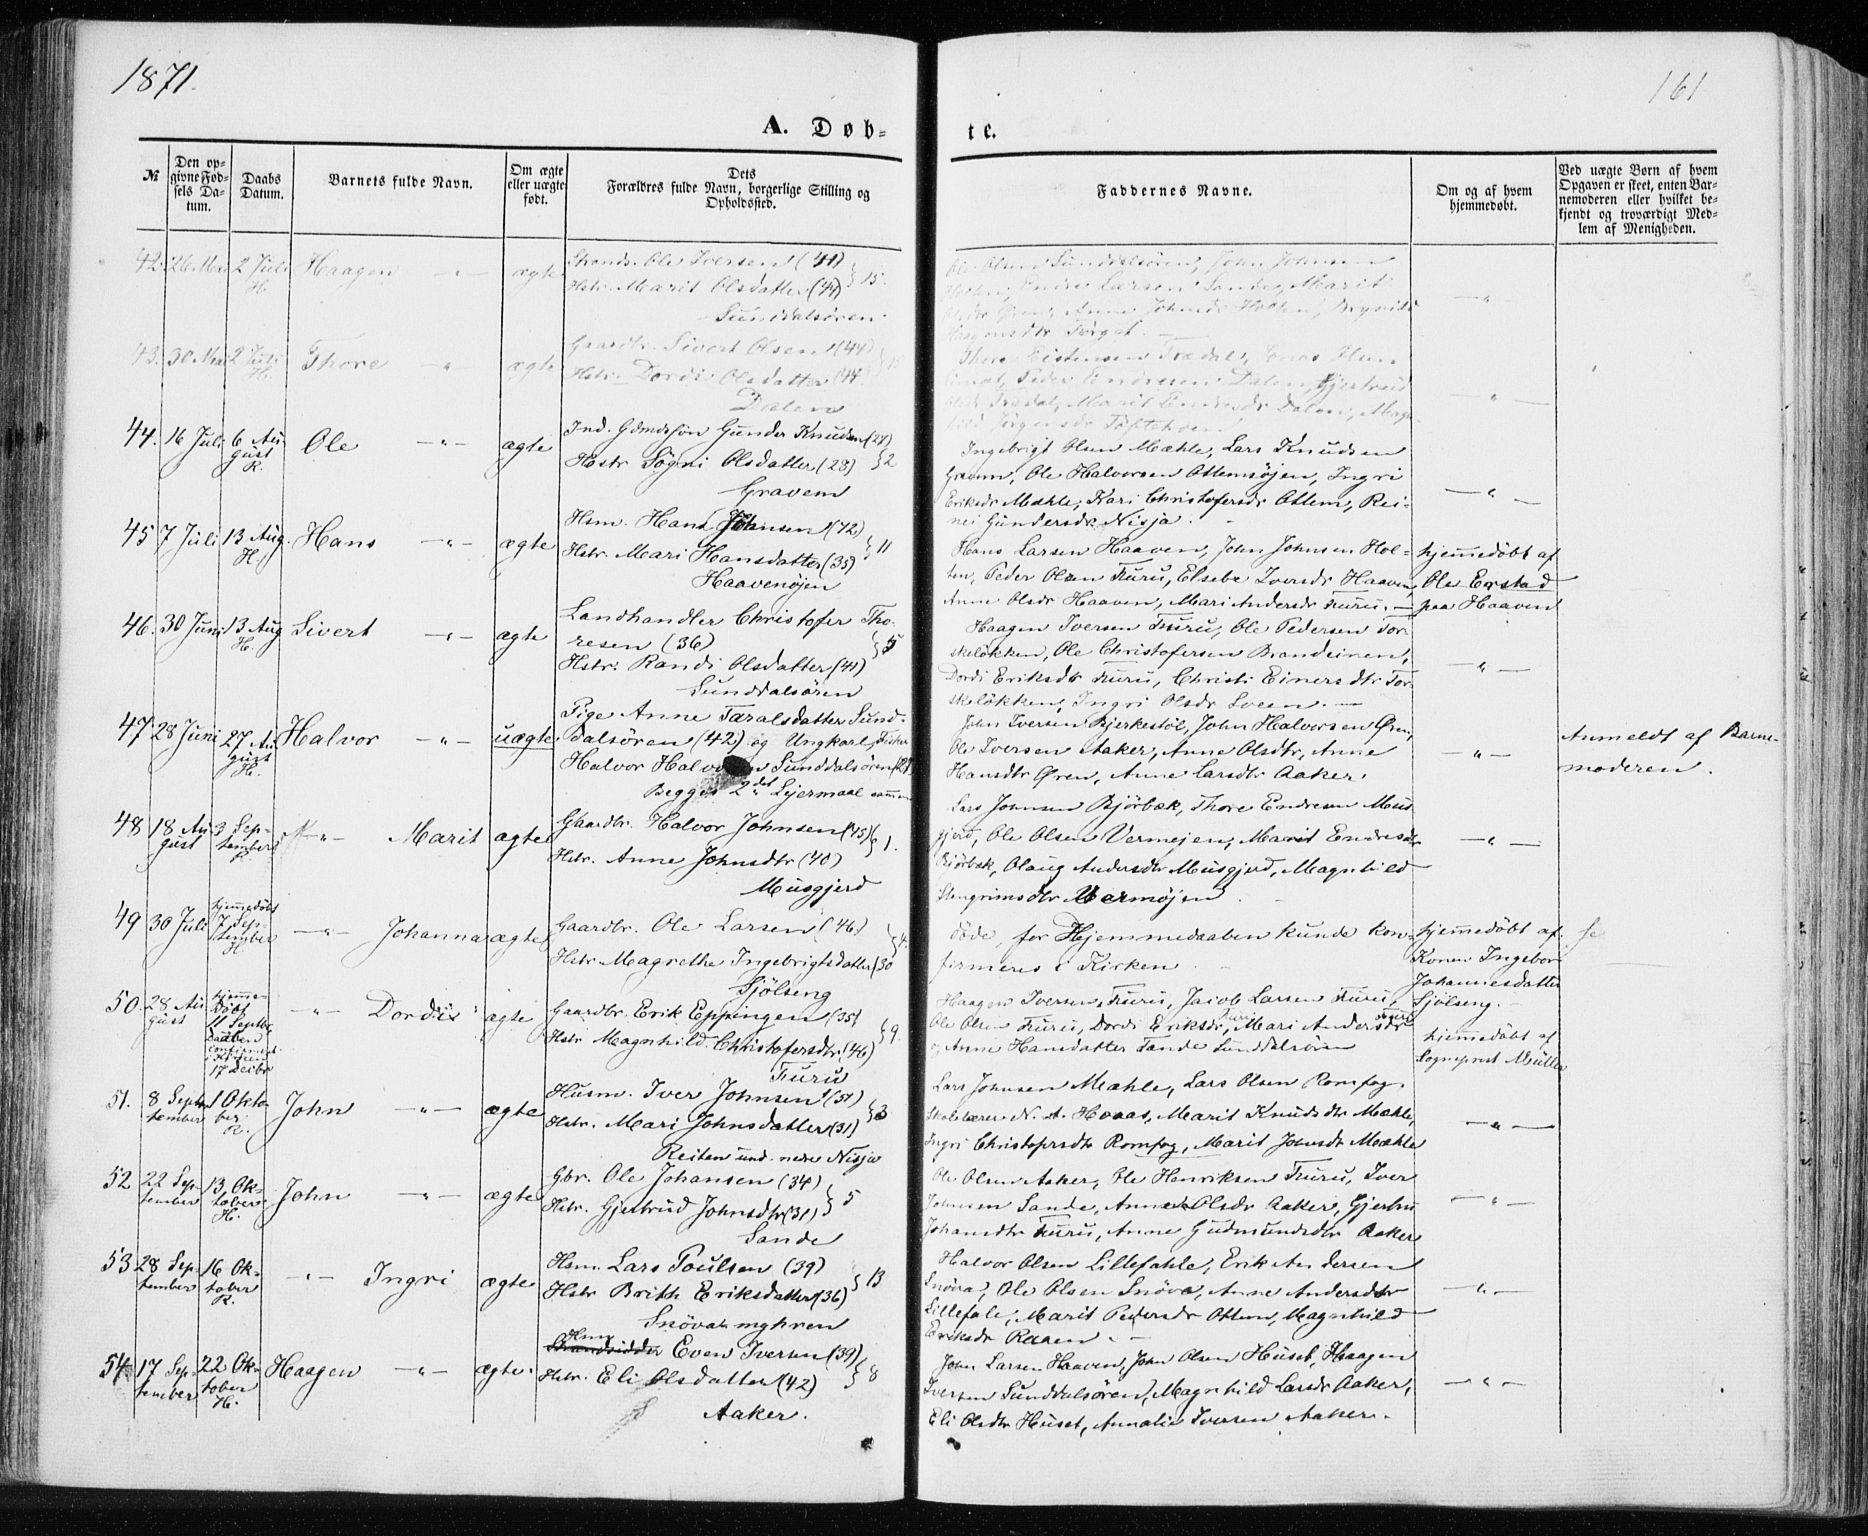 1871.
161
A. Døb-
te.
№
Den op-
givne Fød-
sels Da-
tum.
Daabs
Datum.
Barnets fulde Navn.
Om ægte
eller uægte
født.
Dets
Forældres fulde Navn, borgerlige Stilling og
Opholdssted.
Faddernes Navne.
Om og af hvem
hjemmedøbt.
Ved uægte Børn af hvem
Opgaven er skeet, enten Bar-
nemoderen eller hvilket be-
kjendt og troværdigt Med-
lem af Menigheden.
42. 26 Mai 2 Juli H. Haagen -"- ægte
Strands. Ole Iversen (41)
Hstr. Marit Olsdatter (44) } 15.
Sunddalsören.
Ole Olsen Sunddalsören, John Johnsen
Holten, Endre Larsen Sande, Marit
Olsdr Øren, Anne Johnsdr Holten, Brynild
-"-
43. 30 Mai 2 Juli H. Thore -"- ægte
Gaardbr. Sivert Olsen (44)
Hstr. Dordi Olsdatter (44)
Dalen
Thore Tredal, Jonas Olsen
Peder Endresen Dalen, Gjertrud
Olsdr Tredal, Marit Endresdr Dalen,
-"-
44. 16 Juli 6 Au-
gust R. Ole -"- ægte
Ind. Gdmdssön Gunder Knudsen (27)
Hstr Sögni Olsdatter (28) } 2
Gravem
Ingebrigt Olsen Mæhle, Lars Knudsen
Gravem, Ole Halvorsen Ottemsöjen, Ingri
Eriksdr Mæhle, Kari Christofersdr Ottem, Rei-
nei Gundersdr Nisja.
-"-
45 7 Juli 13 Aug. H. Hans -"- ægte
Hsm. Hans Johnsen (42)
Hstr. Mari Hansdatter (35) } 11
Haavenöjen
Hans Larsen Haaven, John Johnsen Hol-
ten, Peder Olsen Furu, Elsebe Iversdr Haaven,
Anne Olsdr Haaven, Mari Andersdr Furu. -
hjemmedöbt af
Ole Erstad
paa Haaven
46. 30 Juni 13 Aug H. Sivert -"- ægte
Landhandler Christofer Tho-
resen (36)
Hstr. Randi Olsdatter (41) } 5
Sunddalsören
Haagen Iversen Furu, Ole Pedersen Tor-
skelökken, Ole Christofersen Brandeinen,
Dordi Eriksdr Furu, Christi Einersdtr Tor-
skelökken, Ingri Olsdr Sveen. -
-"-
47 28 Juni 27 Au-
gust H. Halvor -"- uægte
Pige Anne Taralsdatter Sund-
dalsören (42) og Ungkarl, Fisker
Halvor Sunddalsören
Begges 2det Lejermaal sammen
John Iversen Bjerkestöl, John Halvorsen Øren,
Ole Iversen Aaker, Anne Olsdtr, Anne
Hansdtr Øren, Anne Larsdtr Aaker.
-"-
Anmeldt af Barne-
moderen.
48 18 Au-
gust 3 Sep-
tember R. -"- Marit ægte
Gaardbr. Halvor Johnsen (45)
Hstr. Anne Johnsdtr (40) } 1.
Musgjerd
Lars Johnsen Björbæk, Thore Endresen Mus-
gjerd, Ole Olsen Vermøjen, Marit Endresdtr
Bjørbæk, Olaug Andersdtr Musgjerd, Magnhild
Stengrimsdtr Vermøjen.
-"-
49 30 Juli hjemmedöbt
7 Sep-
tember H. -"- Johanna ægte
Gaardbr. Ole Larsen (46)
Hstr Magrethe Ingebrigtsdatter (30 } 4.
Sjölseng
döde, for Hjemmedaaben kunde kon-
firmeres i Kirken.
hjemmedöbt af
Konen Ingebor
Johannesdatter
Sjölseng.
50. 28 Au-
gust hjemme-
döbt
11 Septbr
Daaben
confirmed
i Kirken
17 Decbr -"- Dordi ægte
Gaardbr. Erik Eppingen (35)
Hstr Magnhild Christofersdtr (46) } 9.
Furu
Haagen Iversen Furu, Jacob Larsen Furu,
Ole Olsen Furu, Dordi Eriksdr Furu, Mari Andersdr
og Anne Hansdatter Tande Sunddalsören
hjemmedöbt af
Sogneprest Müller
51. 8 Sep-
tember 1 Okto-
ber R. John -"- ægte
Husm. Iver Johnsen (51)
Hstr. Mari Johnsdatter (31) } 3
Reiten und. nedre Nisja
Lars Johnsen Mæhle, Lars Olsen Romfog,
Skolelærer N. A. Hoaas, Marit Knudsdtr Mæhle,
Ingri Christofersdtr Romfog, Marit Johnsdr Mæhle
-"-
52 22 Sep-
tember 13 Ok-
tober H. John -"- ægte
Gbr. Ole Johansen (34)
Hstr. Gjertrud Johnsdtr (31) } 5
Sande
Ole Olsen Aaker, Ole Henriksen Furu, Iver
Johnsen Sande, Anne Olsdr Aaker, Gjertru
Johansdtr Furu, Anne Gudmundsdtr Aaker
-"-
53 28 Sep-
tember 16 Ok-
tober R. -"- Ingri ægte
Hsm. Lars Poulsen (39)
Hstr Brith Eriksdatter (36) } 13
Snövasmyhren
Halvor Olsen Lillefahle, Erik Andersen
Snöva, Ole Olsen Snöva, Anne Andersdtr
Lillefale, Marit Pedersdr Ottem, Magnhild
Eriksdr Raaen. -
-"-
54 17 Sep-
tember 22 Ok-
tober H. Haagen -"- ægte
Hsm Even Iversen (39)
Hstr. Eli Olsdatter (42) } 8
Aaker.
John Larsen Haaven, John Olsen Huset, Haagen
Iversen Sunddalsören, Magnhild Larsdr Aaker,
Eli Olsdtr Huset, Annalie Iversen Aaker.
-"-